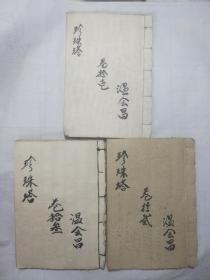 珍珠塔
卷拾壱
温会昌
珍珠塔
卷拾叁
温会昌
珍珠塔
卷拾贰
温会昌